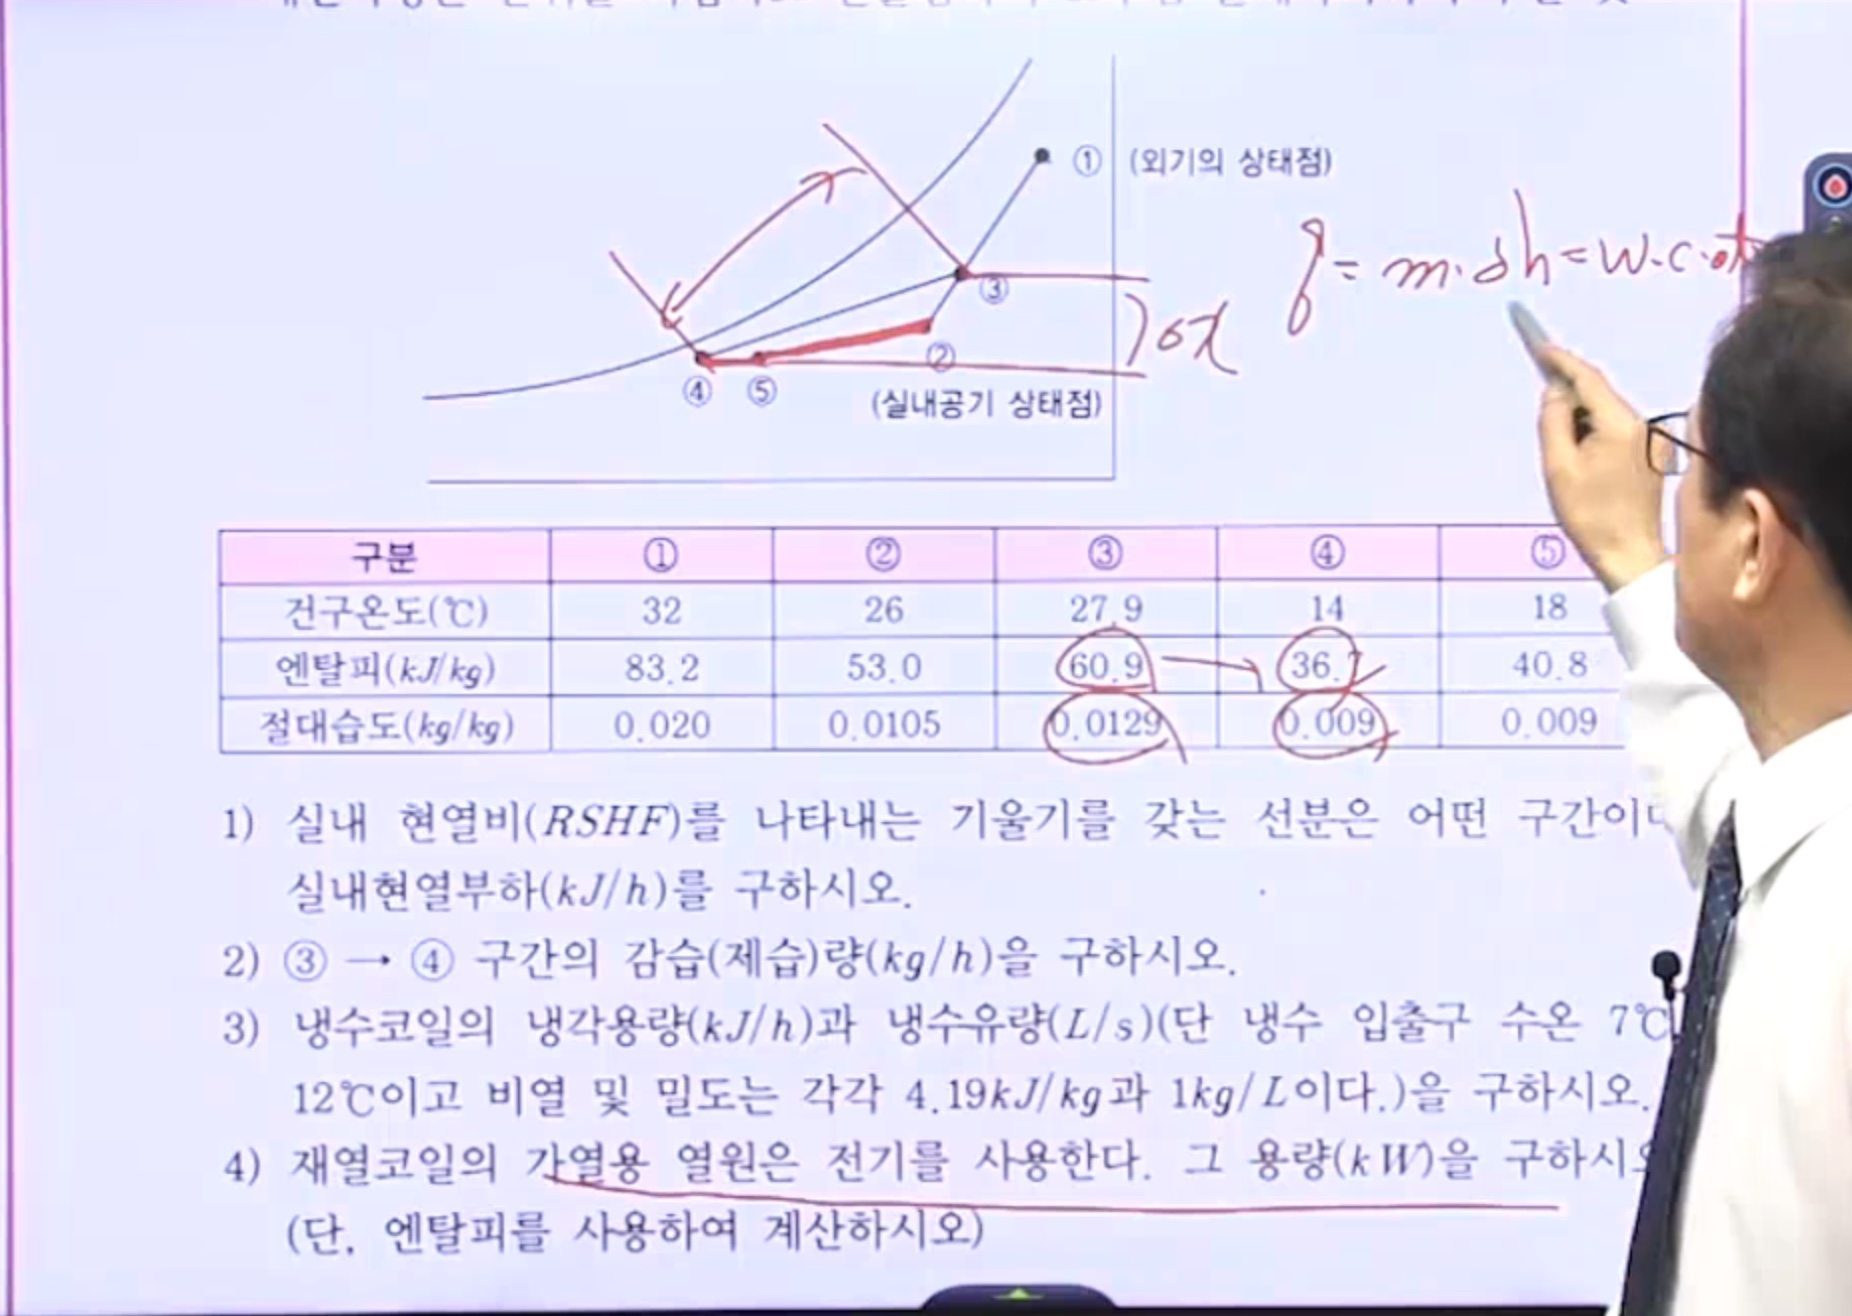 ① (외기의 상태점)
③
②
④ ⑤
(실내공기 상태점)
q = m·Δh = W·C·Δt
Δx
구분 ① ② ③ ④ ⑤
건구온도(℃) 32 26 27.9 14 18
엔탈피(kJ/kg) 83.2 53.0 60.9 36.7 40.8
절대습도(kg/kg) 0.020 0.0105 0.0129 0.009 0.009
1) 실내 현열비(RSHF)를 나타내는 기울기를 갖는 선분은 어떤
실내현열부하(kJ/h)를 구하시오.
2) ③ → ④ 구간의 감습(제습)량(kg/h)을 구하시오.
3) 냉수코일의 냉각용량(kJ/h)과 냉수유량(L/s)(단 냉수 입출구 수온 7℃
12℃이고 비열 및 밀도는 각각 4.19kJ/kg과 1kg/L이다.)을 구하시오.
4) 재열코일의 가열용 열원은 전기를 사용한다. 그 용량(kW)을
(단, 엔탈피를 사용하여 계산하시오)